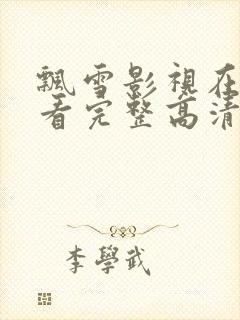 飄雪影視在
看完整高清
李學武